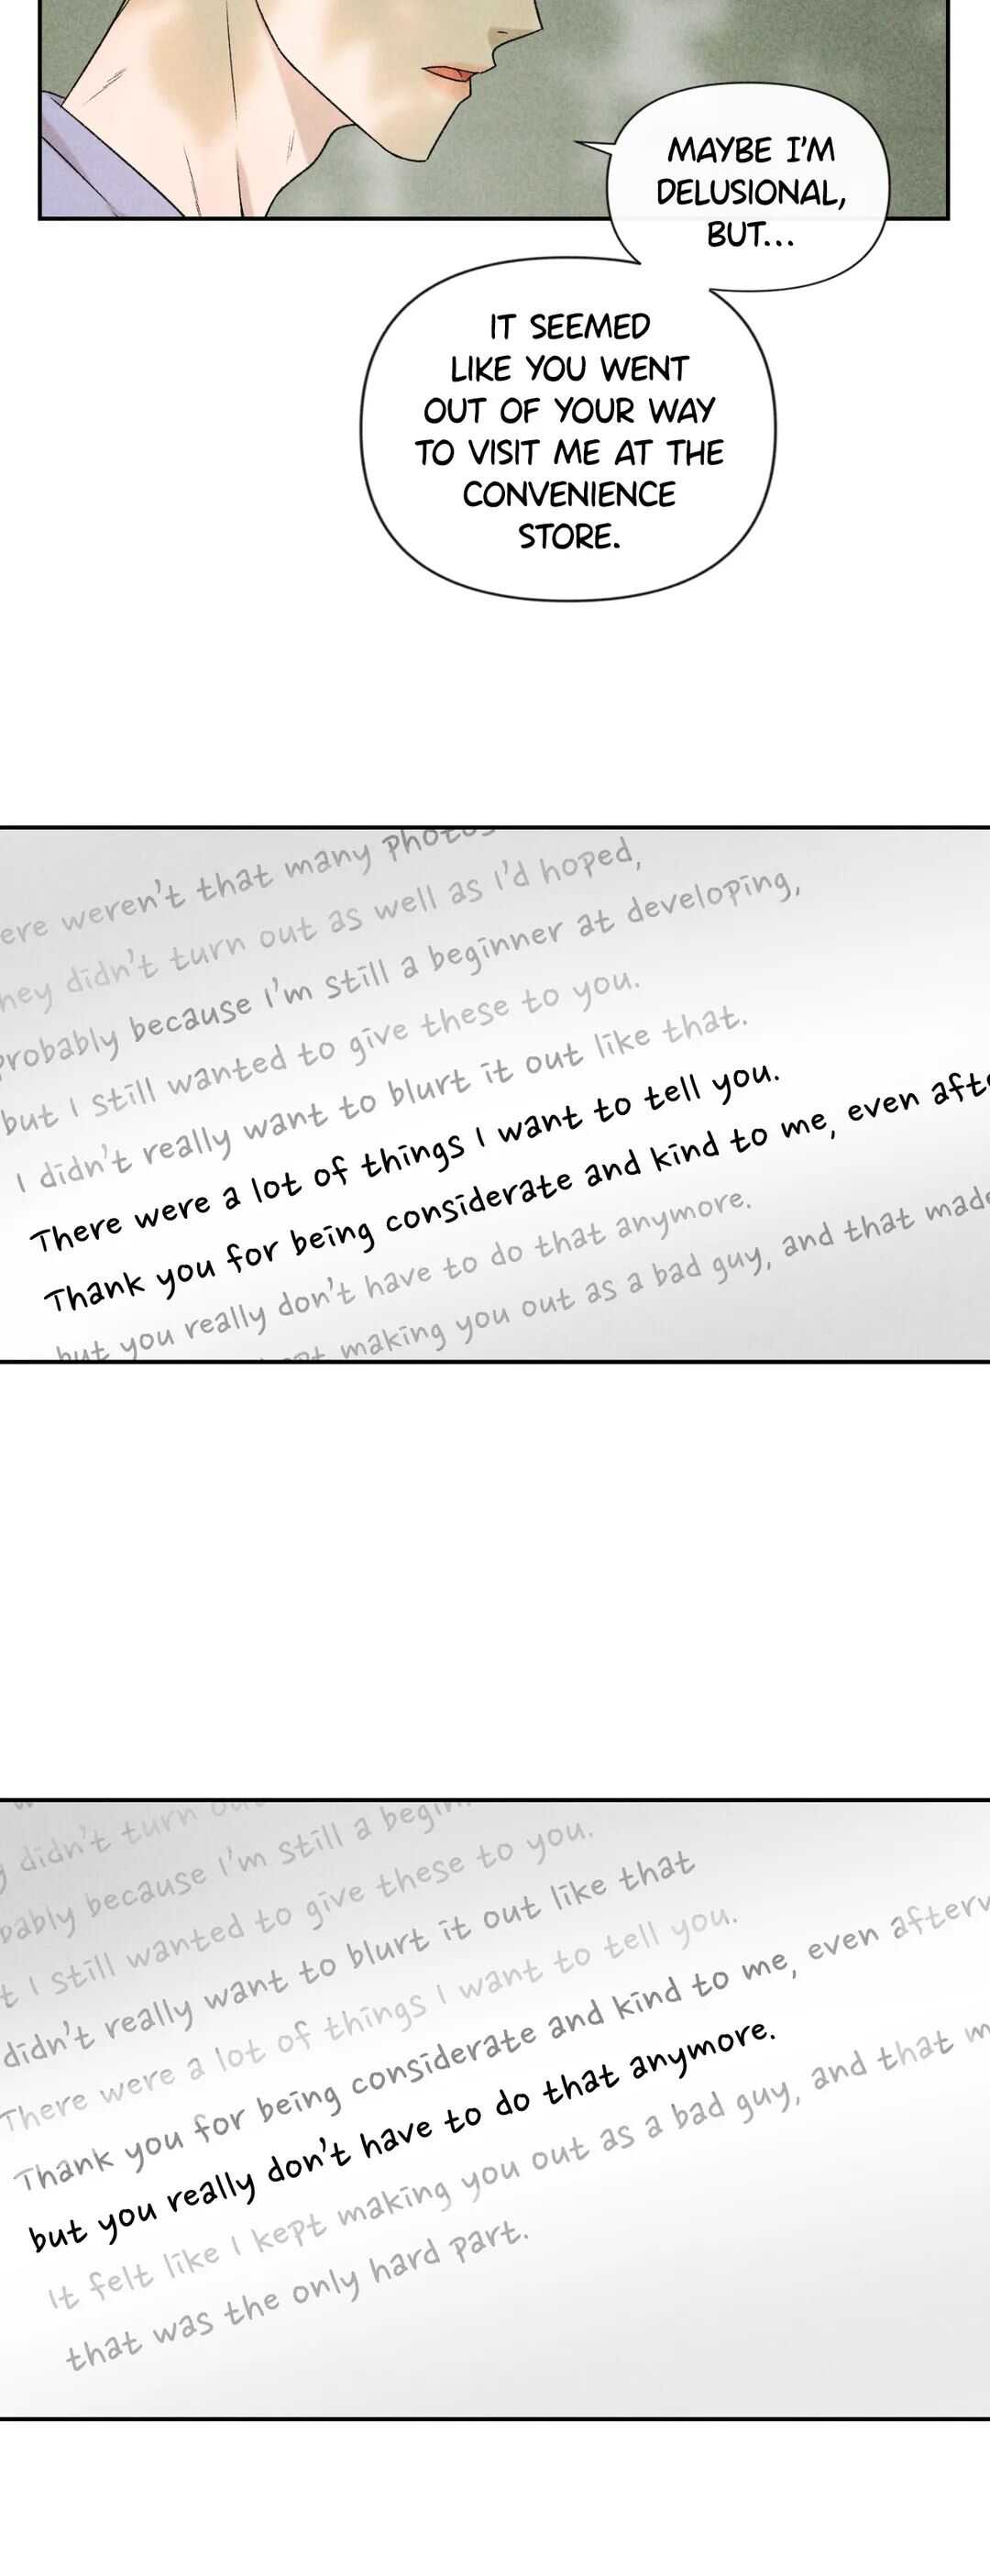 MAYBE I'M
DELUSIONAL,
BUT...
IT SEEMED
LIKE YOU WENT
OUT OF YOUR WAY
TO VISIT ME AT THE
CONVENIENCE
STORE.
ere weren't that many photos
hey didn't turn out as well as I'd hoped,
probably because I'm still a beginner at developing,
but I still wanted to give these to you.
I didn't really want to blurt it out like that.
There were a lot of things I want to tell you.
Thank you for being considerate and kind to me, even afte
but you really don't have to do that anymore.
making you out as a bad guy, and that made
didn't turn
bably because I'm still a begin
t I still wanted to give these to you.
didn't really want to blurt it out like that
There were a lot of things I want to tell you.
Thank you for being considerate and kind to me, even afterw
but you really don't have to do that anymore.
It felt like I kept making you out as a bad guy, and that m
that was the only hard part.